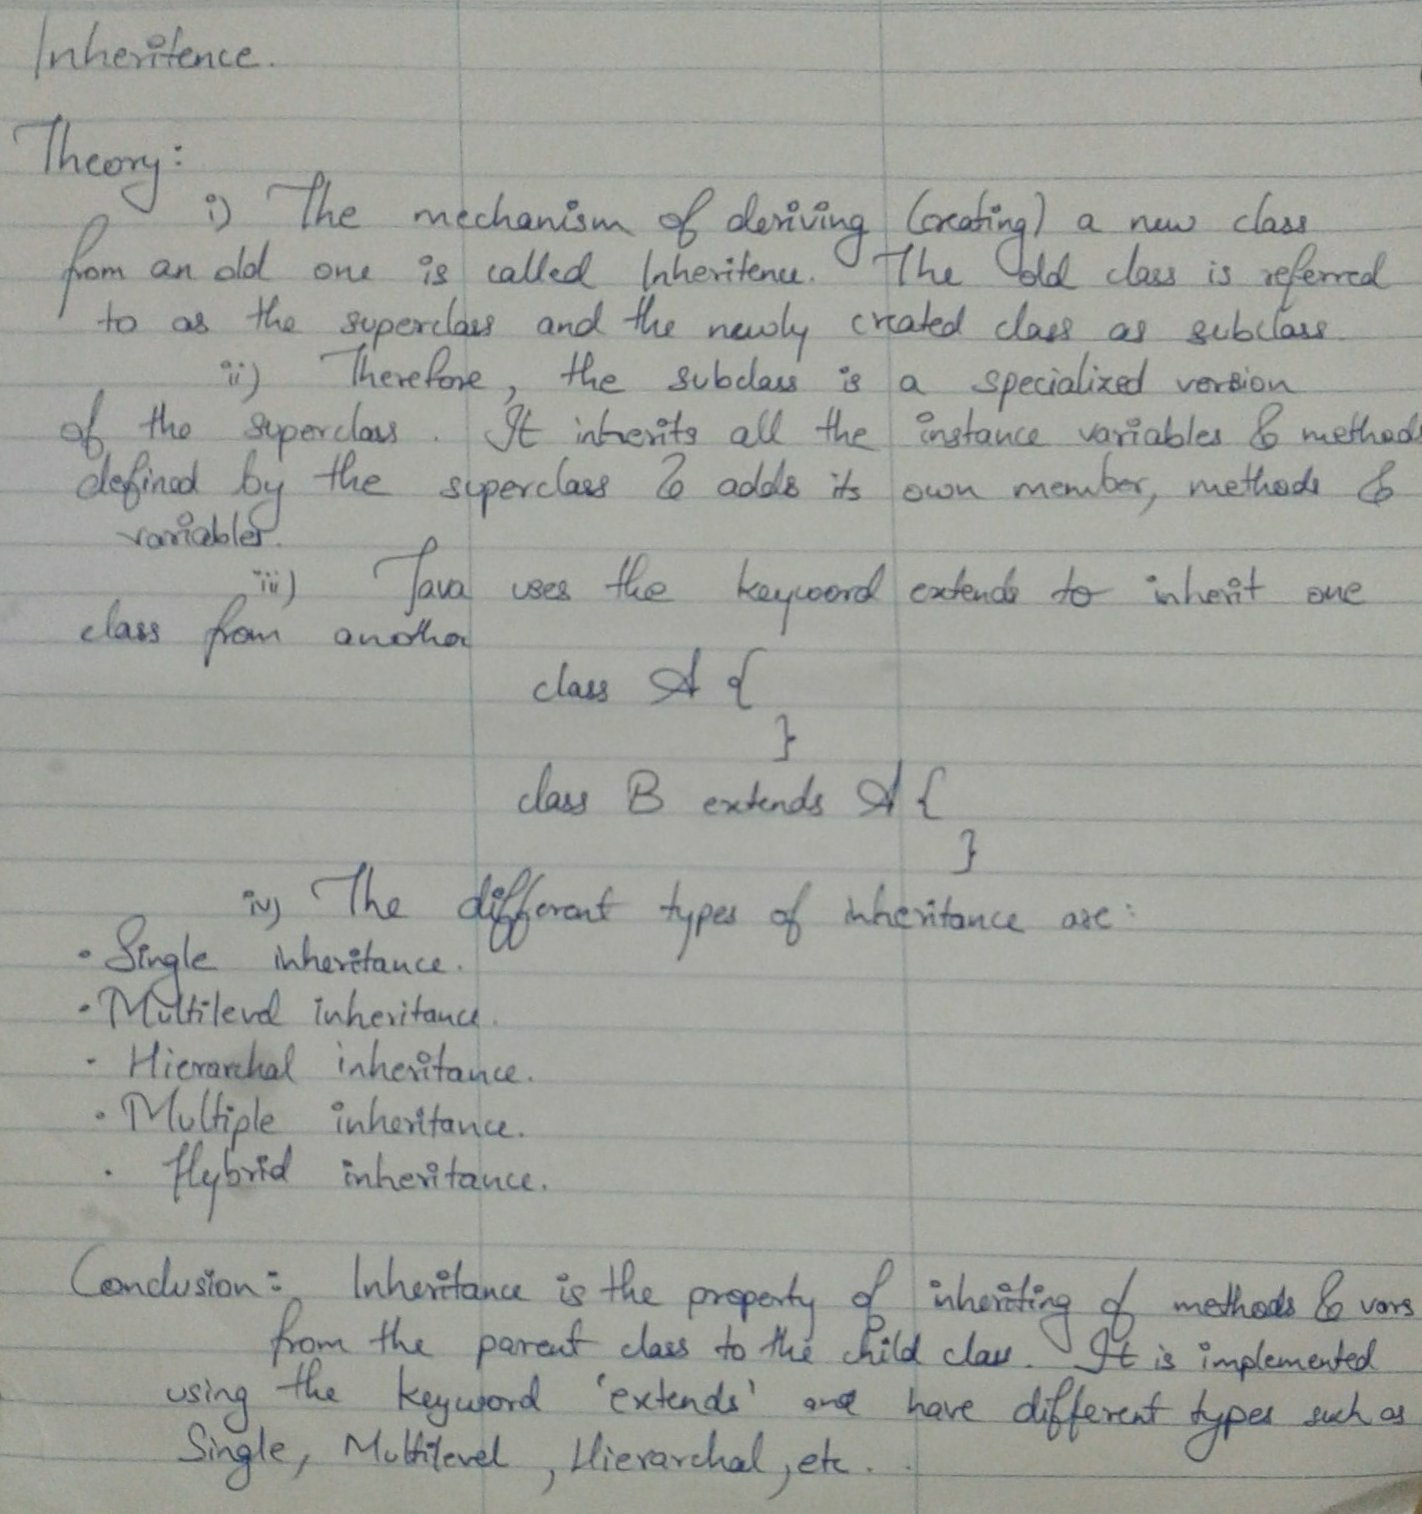 Inheritence.
Theory:
i) The mechanism of deriving (creating) a new class
from an old one is called Inheritence. The old class is referred
to as the superclass and the newly created class as subclass
ii) Therefore, the subclass is a specialized version
of the superclass. It inherits all the instance variables & methods
defined by the superclass & adds its own member, methods &
variables.
iii) Java uses the keyword extends to inherit one
class from another
class A {
}
class B extends A {
}
iv) The different types of inheritance are:
• Single inheritance.
• Multilevel inheritance.
• Hierarchal inheritance.
• Multiple inheritance.
• Hybrid inheritance.
Conclusion: Inheritance is the property of inheriting of methods & vars
from the parent class to the child class. It is implemented
using the keyword 'extends' and have different types such as
Single, Multilevel, Hierarchal, etc.